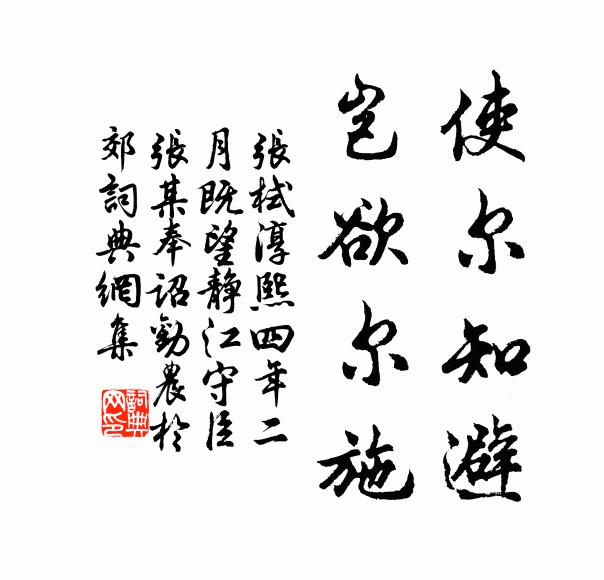 使尔知避
岂欲尔施
張栻淳熙四年二
月既望静江守臣
張某奉詔勸農於
郊詞典網集
詞典
网印